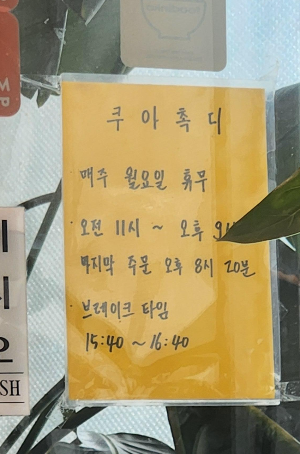 쿠아촉디
매주 월요일 휴무
오전 11시 ~ 오후
마지막 주문 오후 8시 20분
· 브레이크 타임
15:40 ~ 16:40
SH